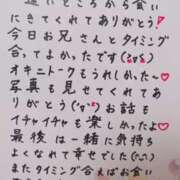 遠いところから会い
にきてくれてありがとう
今日お兄さんとタイミング
合ってよかったです(≧▽≦)
オキニトークもうれしかった〜
写真も見せてくれてあり
がとう(^з^) お話も
イチャイチャも楽しかったよ
最後は一緒に気持ち
よくなれて幸せでした(^^)
またタイミング合えばお会い